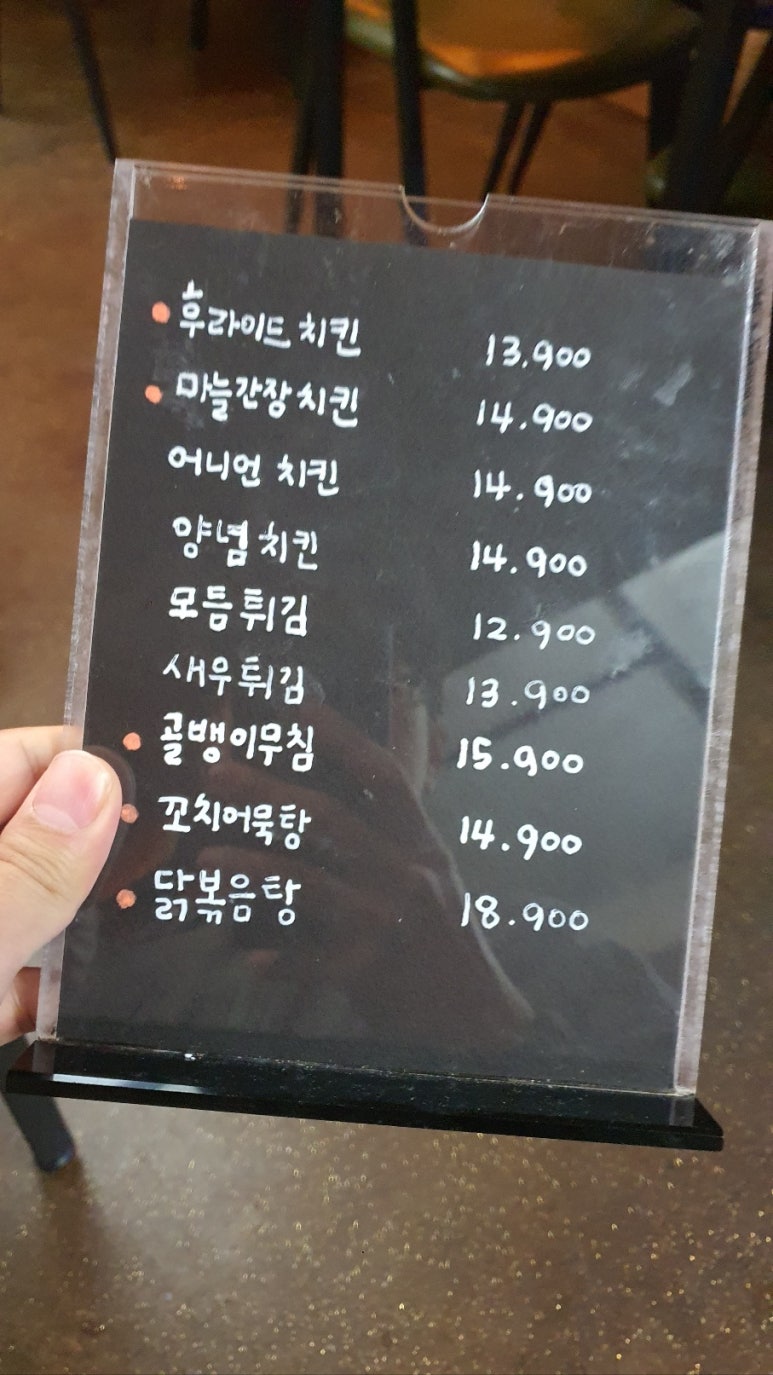 후라이드 치킨 13.900
마늘간장 치킨 14.900
어니언 치킨 14.900
양념 치킨 14.900
모듬 튀김 12.900
새우튀김 13.900
골뱅이무침 15.900
꼬치어묵탕 14.900
닭볶음탕 18.900